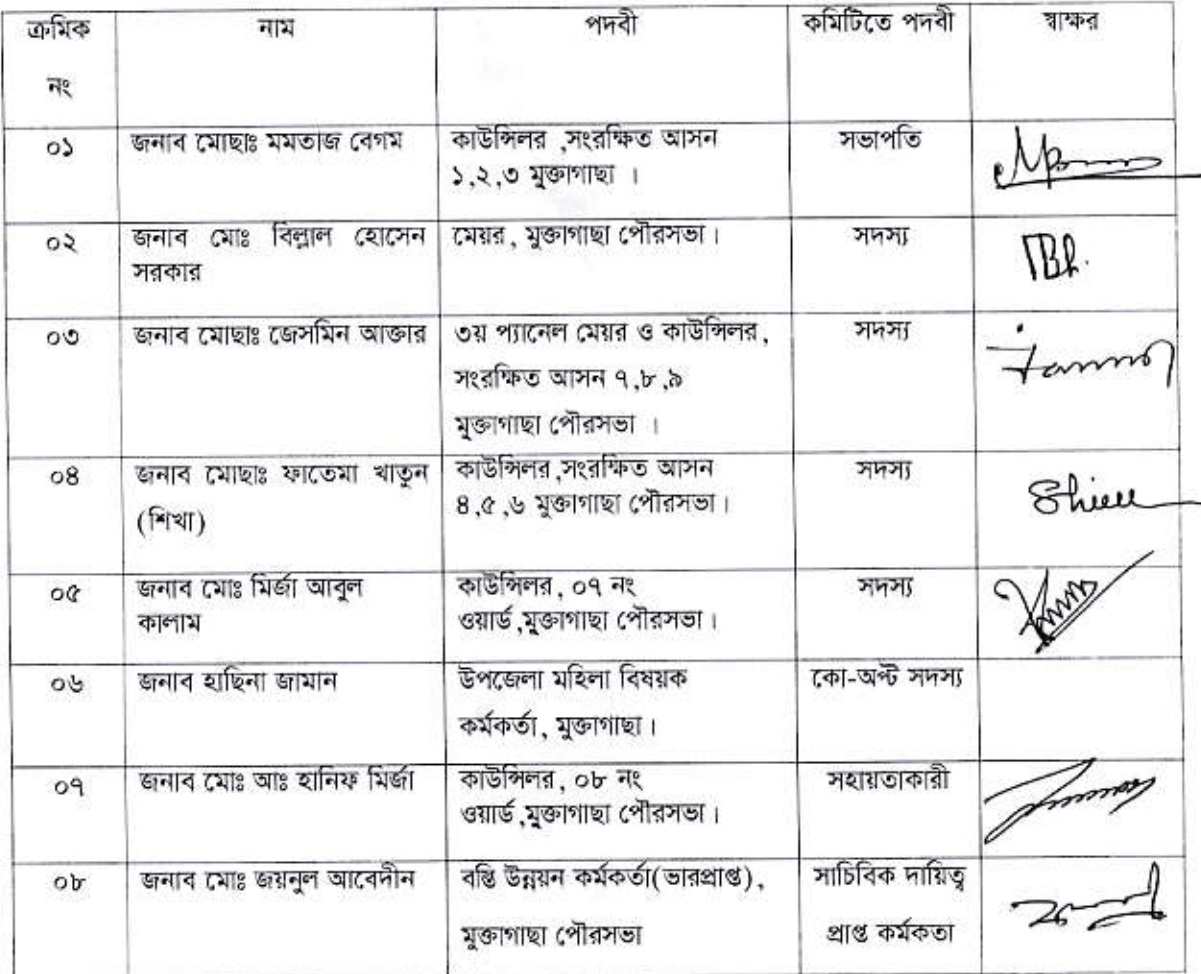 ক্রমিক নং | নাম | পদবী | কমিটিতে পদবী | স্বাক্ষর
০১ | জনাব মোছাঃ মমতাজ বেগম | কাউন্সিলর ,সংরক্ষিত আসন
১,২,৩ মুক্তাগাছা । | সভাপতি
০২ | জনাব মোঃ বিল্লাল হোসেন
সরকার | মেয়র, মুক্তাগাছা পৌরসভা। | সদস্য
০৩ | জনাব মোছাঃ জেসমিন আক্তার | ৩য় প্যানেল মেয়র ও কাউন্সিলর,
সংরক্ষিত আসন ৭,৮,৯
মুক্তাগাছা পৌরসভা । | সদস্য
০৪ | জনাব মোছাঃ ফাতেমা খাতুন
(শিখা) | কাউন্সিলর,সংরক্ষিত আসন
৪,৫,৬ মুক্তাগাছা পৌরসভা। | সদস্য
০৫ | জনাব মোঃ মির্জা আবুল
কালাম | কাউন্সিলর, ০৭ নং
ওয়ার্ড,মুক্তাগাছা পৌরসভা। | সদস্য
০৬ | জনাব হাছিনা জামান | উপজেলা মহিলা বিষয়ক
কর্মকর্তা, মুক্তাগাছা। | কো-অপ্ট সদস্য
০৭ | জনাব মোঃ আঃ হানিফ মির্জা | কাউন্সিলর, ০৮ নং
ওয়ার্ড,মুক্তাগাছা পৌরসভা। | সহায়তাকারী
০৮ | জনাব মোঃ জয়নুল আবেদীন | বস্তি উন্নয়ন কর্মকর্তা(ভারপ্রাপ্ত),
মুক্তাগাছা পৌরসভা | সাচিবিক দায়িত্ব
প্রাপ্ত কর্মকতা